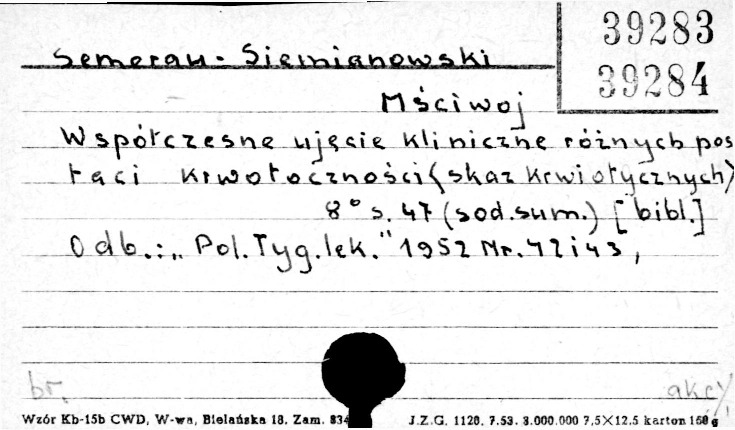 39283
39284
Semerau-Siemianowski
Mściwoj
Współczesne ujęcie kliniczne różnych pos
taci krwotoczności (skaz krwiotycznych)
8° s. 47 (sod.sum.) [bibl.]
Odb.: „Pol.Tyg.lek." 1952 Nr. 42 i 43,
br. akc
Wzór Kb-15b CWD, W-wa, Bielańska 18. Zam. 834 J.Z.G. 1120. 7.53. 3.000.000 7,5×12,5 karton 150 g